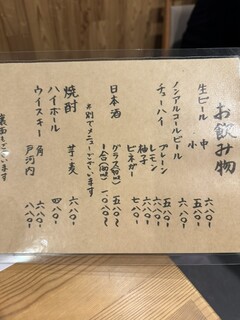 お飲み物
生ビール 中 六八〇-
小 五五〇-
ノンアルコールビール 五五〇-
チューハイ プレーン 五八〇-
レモン 六八〇-
柚子 六八〇-
ビネガー 七八〇-
日本酒 グラス 五五〇〜
一合 一、〇八〇〜
お別でメニューございます
焼酎 芋・麦 六八〇-
ハイボール 四八〇-
ウイスキー 角 六八〇-
戸河内 八八〇-
裏面もございます